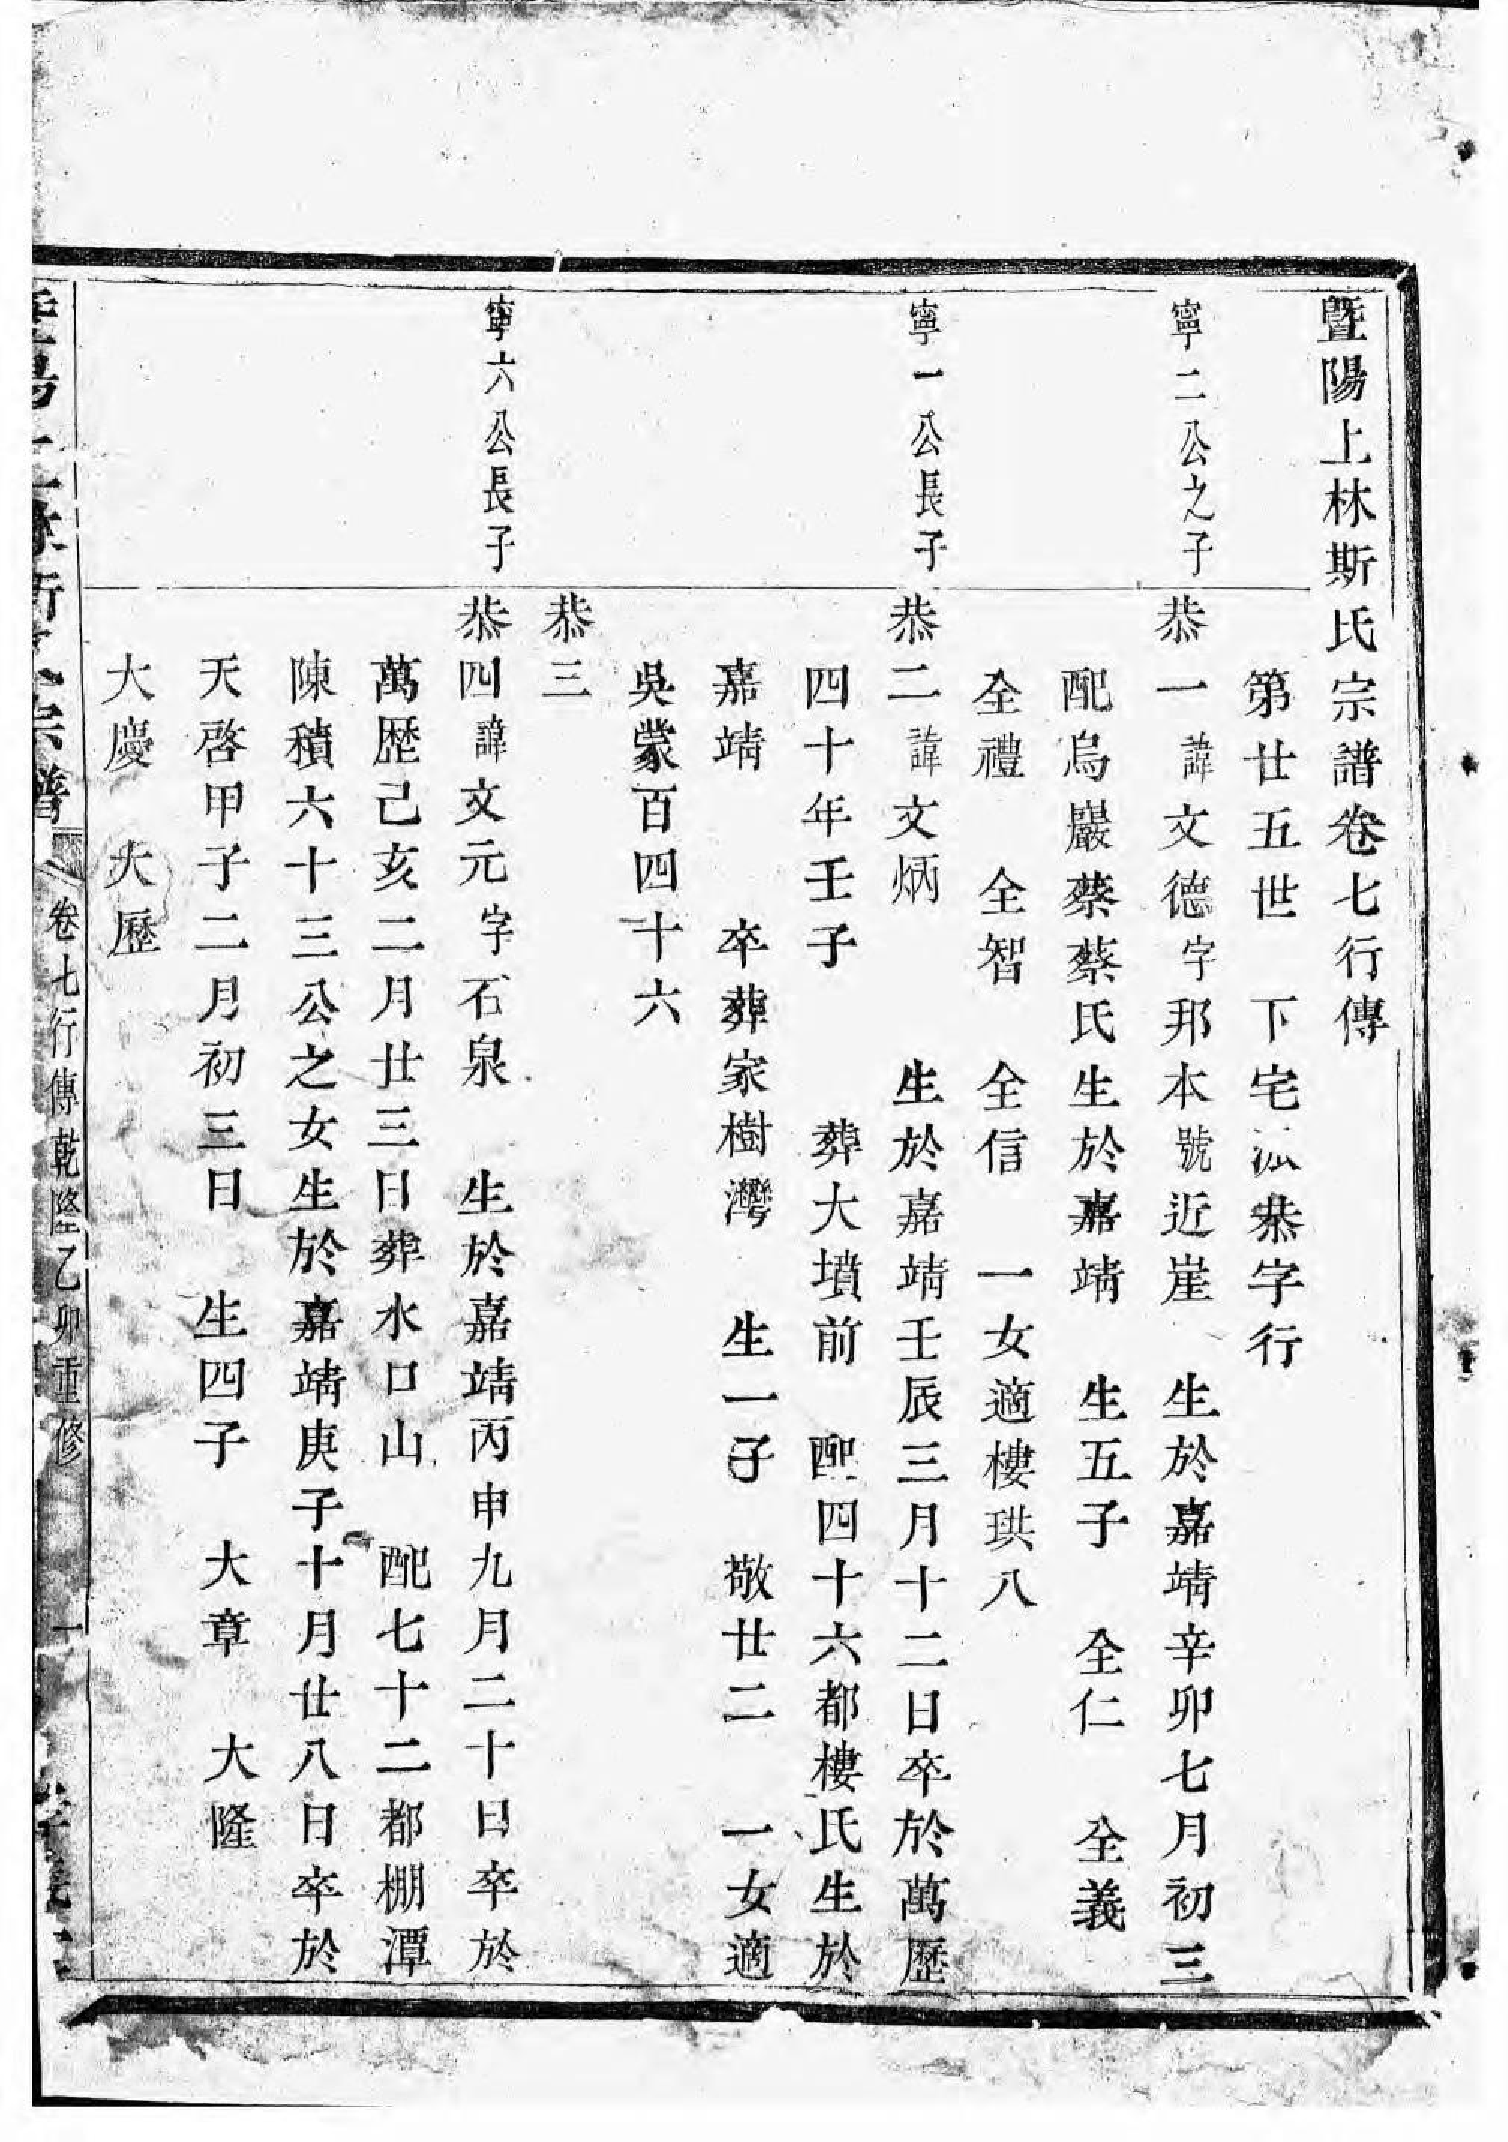 暨陽上林斯氏宗譜卷七行傳
第廿五世 下宅派恭字行
寧二公之子
恭一諱文德字邦本號近崖 生於嘉靖辛卯七月初三
配烏巖蔡蔡氏生於嘉靖 生五子 全仁 全義
全禮 全智 全信 一女適樓珙八
寧一公長子
恭二諱文炳 生於嘉靖壬辰三月十二日卒於萬歷
四十年壬子 葬大墳前 配四十六都樓氏生於
嘉靖 卒葬家樹灣 生一子 敬廿二 一女適
吳蒙百四十六
恭三
寧六公長子
恭四諱文元字石泉 生於嘉靖丙申九月二十日卒於
萬歷己亥二月廿三日葬水口山 配七十二都棚潭
陳積六十三公之女生於嘉靖庚子十月廿八日卒於
天啓甲子二月初三日 生四子 大章 大隆
大慶 大歷
暨陽上林斯氏宗譜 卷七行傳乾隆乙卯重修 一